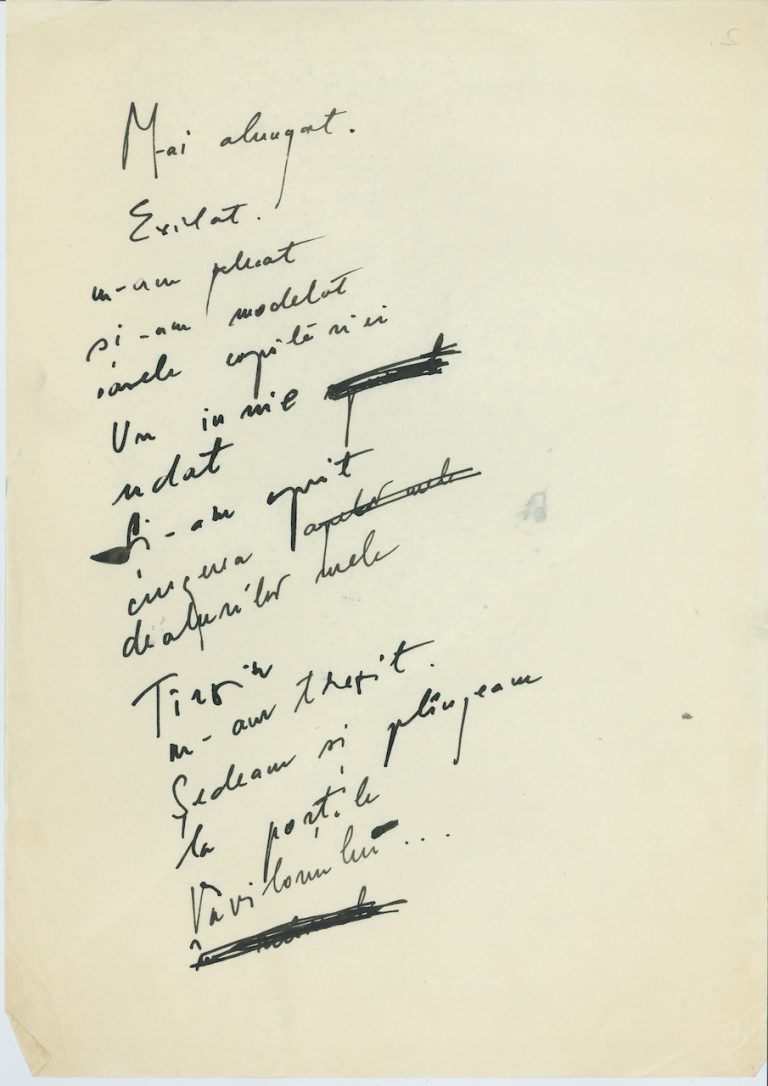 M-ai alungat.
Exilat.
m-am plecat
și-am modelat
oasele copilăriei
Un in mie
ndat
Și-am oprit
cingerea apelor mele
dealurilor mele
Tîrziu
m-am trezit.
Ședeam si plîngeam
la porțile
Vavilonului...